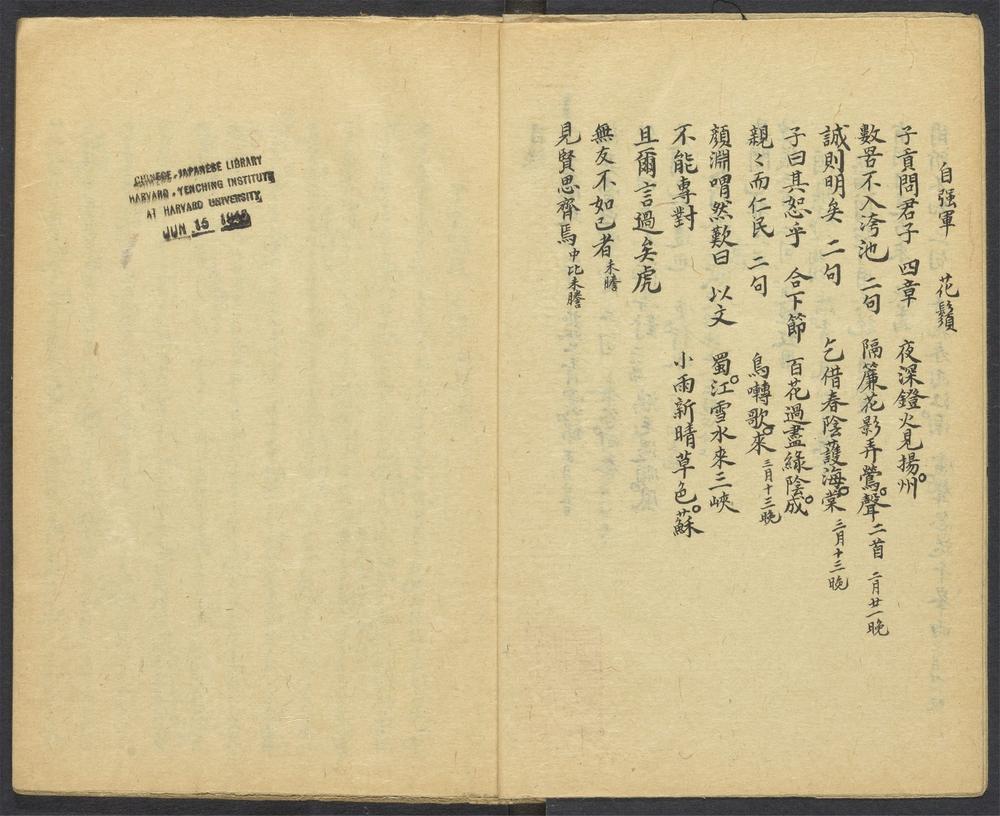 自强軍 花鬚
子貢問君子 四章 夜深鐙火見揚州
數罟不入洿池 二句 隔簾花影弄鶯聲 二首 二月廿一晚
誠則明矣 二句 乞借春陰護海棠 三月十三晚
子曰其恕乎 合下節 百花過盡綠陰成
親〻而仁民 二句 鳥囀歌來 三月十三晚
顏淵喟然歎曰 以文 蜀江雪水來三峽
不能專對 小雨新晴草色蘇
且爾言過矣虎
無友不如己者 未謄
見賢思齊焉 中比未謄
CHINESE-JAPANESE LIBRARY
HARVARD-YENCHING INSTITUTE
AT HARVARD UNIVERSITY
JUN 15